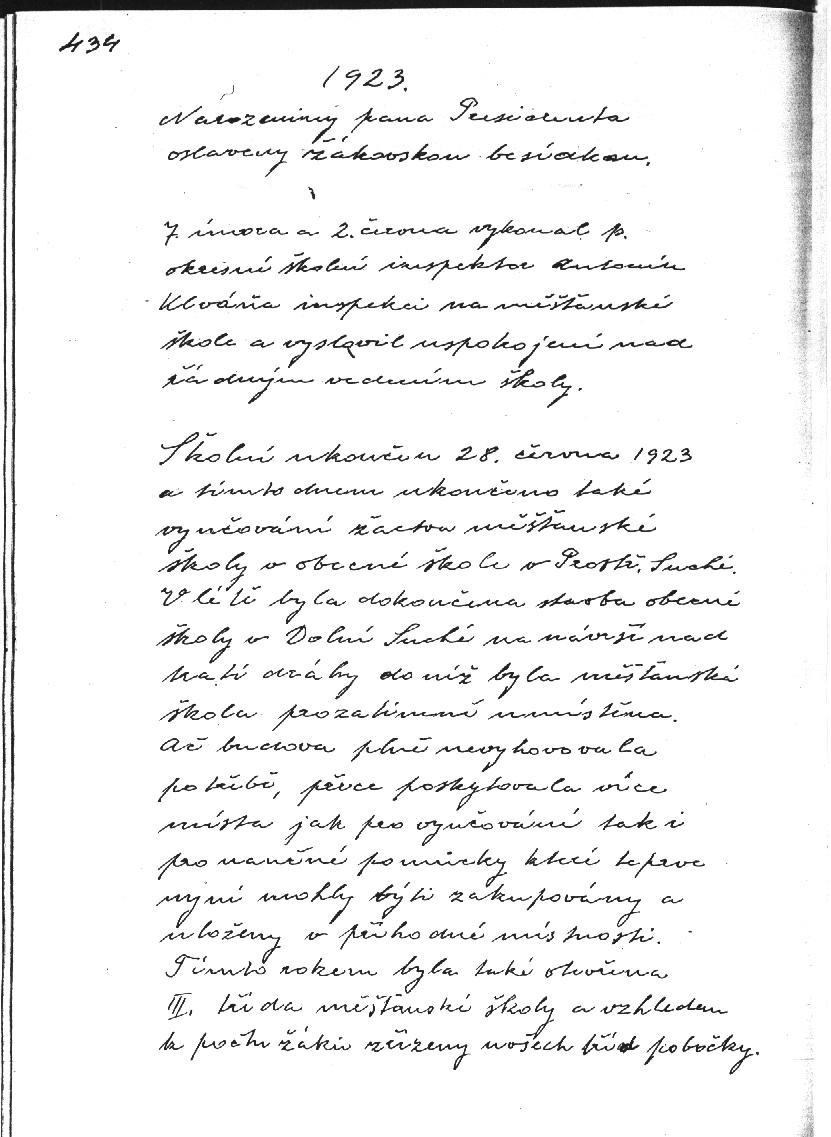 434
1923.
Narozeniny pana Presidenta
oslaveny žákovskou besídkou.
7. února a 2. června vykonal p.
okresní školní inspektor Antonín
Klváňa inspekci na měšťanské
škole a vyslovil uspokojení nad
řádným vedením školy.
Školní ukončen 28. června 1923
a tímto dnem ukončeno také
vyučování žactva měšťanské
školy v obecné škole v Prostř. Suché.
V létě byla dokončena stavba obecné
školy v Dolní Suché na návrší nad
tratí dráhy do níž byla měšťanská
škola prozatímně umístěna.
Ač budova plně nevyhovovala
potřebě, přece poskytovala více
místa jak pro vyučování tak i
pro naučné pomůcky které teprve
nyní mohly býti zakupovány a
uloženy v příhodné místnosti.
Tímto rokem byla také otevřena
III. třída měšťanské školy a vzhledem
k počtu žáků zřízeny u všech tříd pobočky.